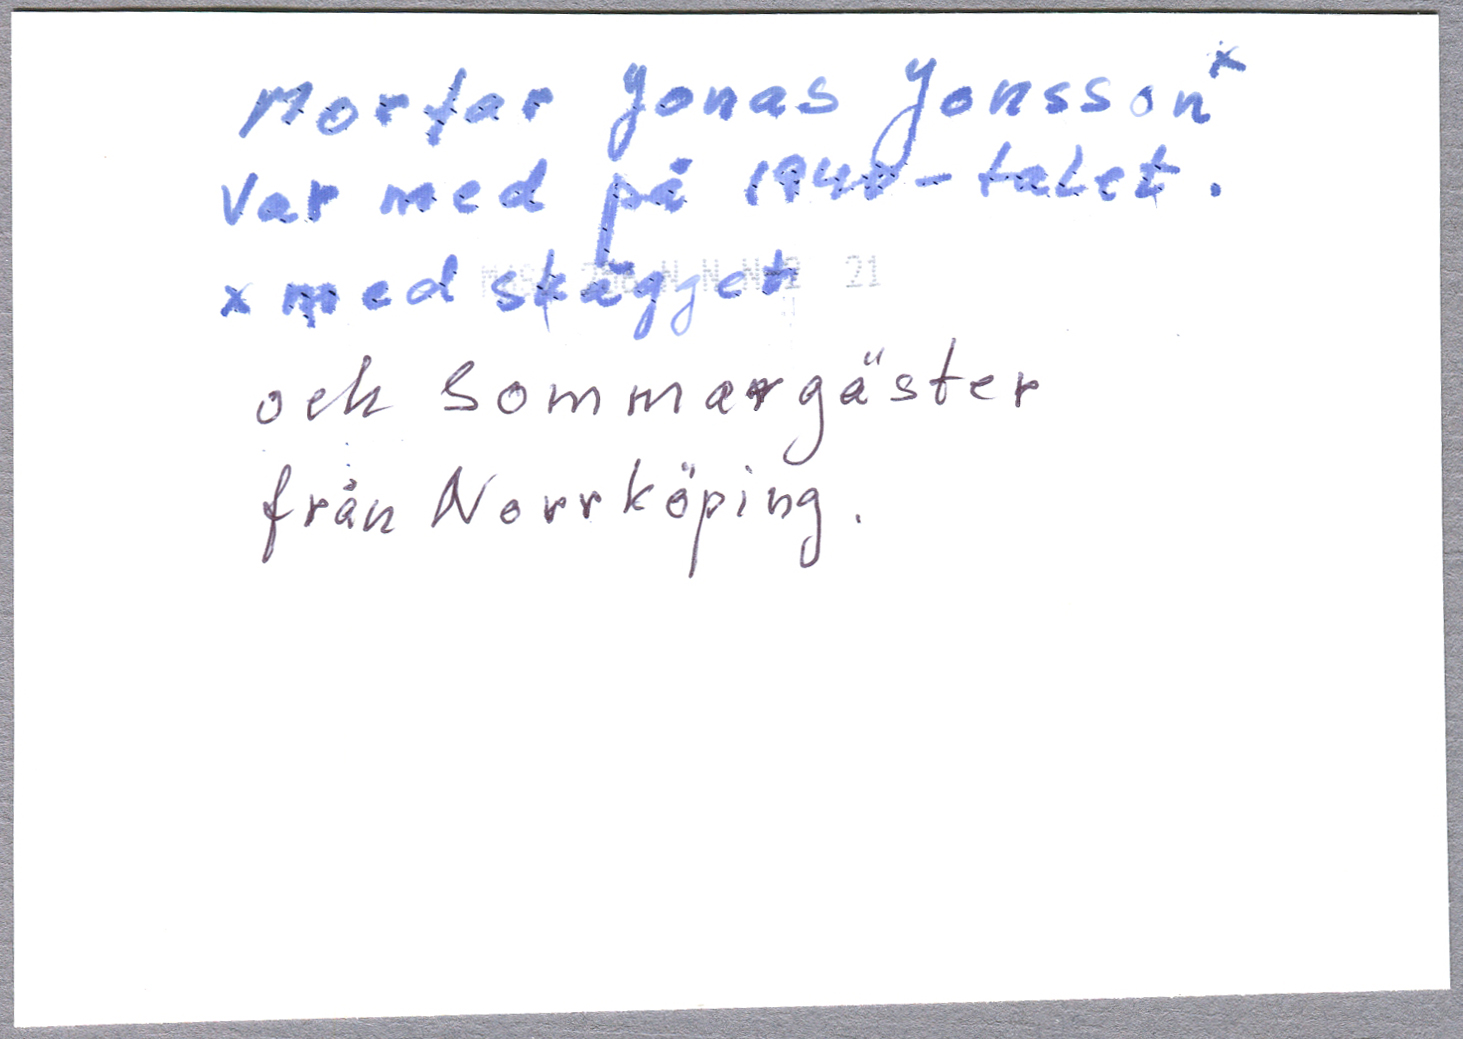 Morfar Jonas Jonsson x
Var med på 1940-talet.
x med skägget
21
och Sommargäster
från Norrköping.